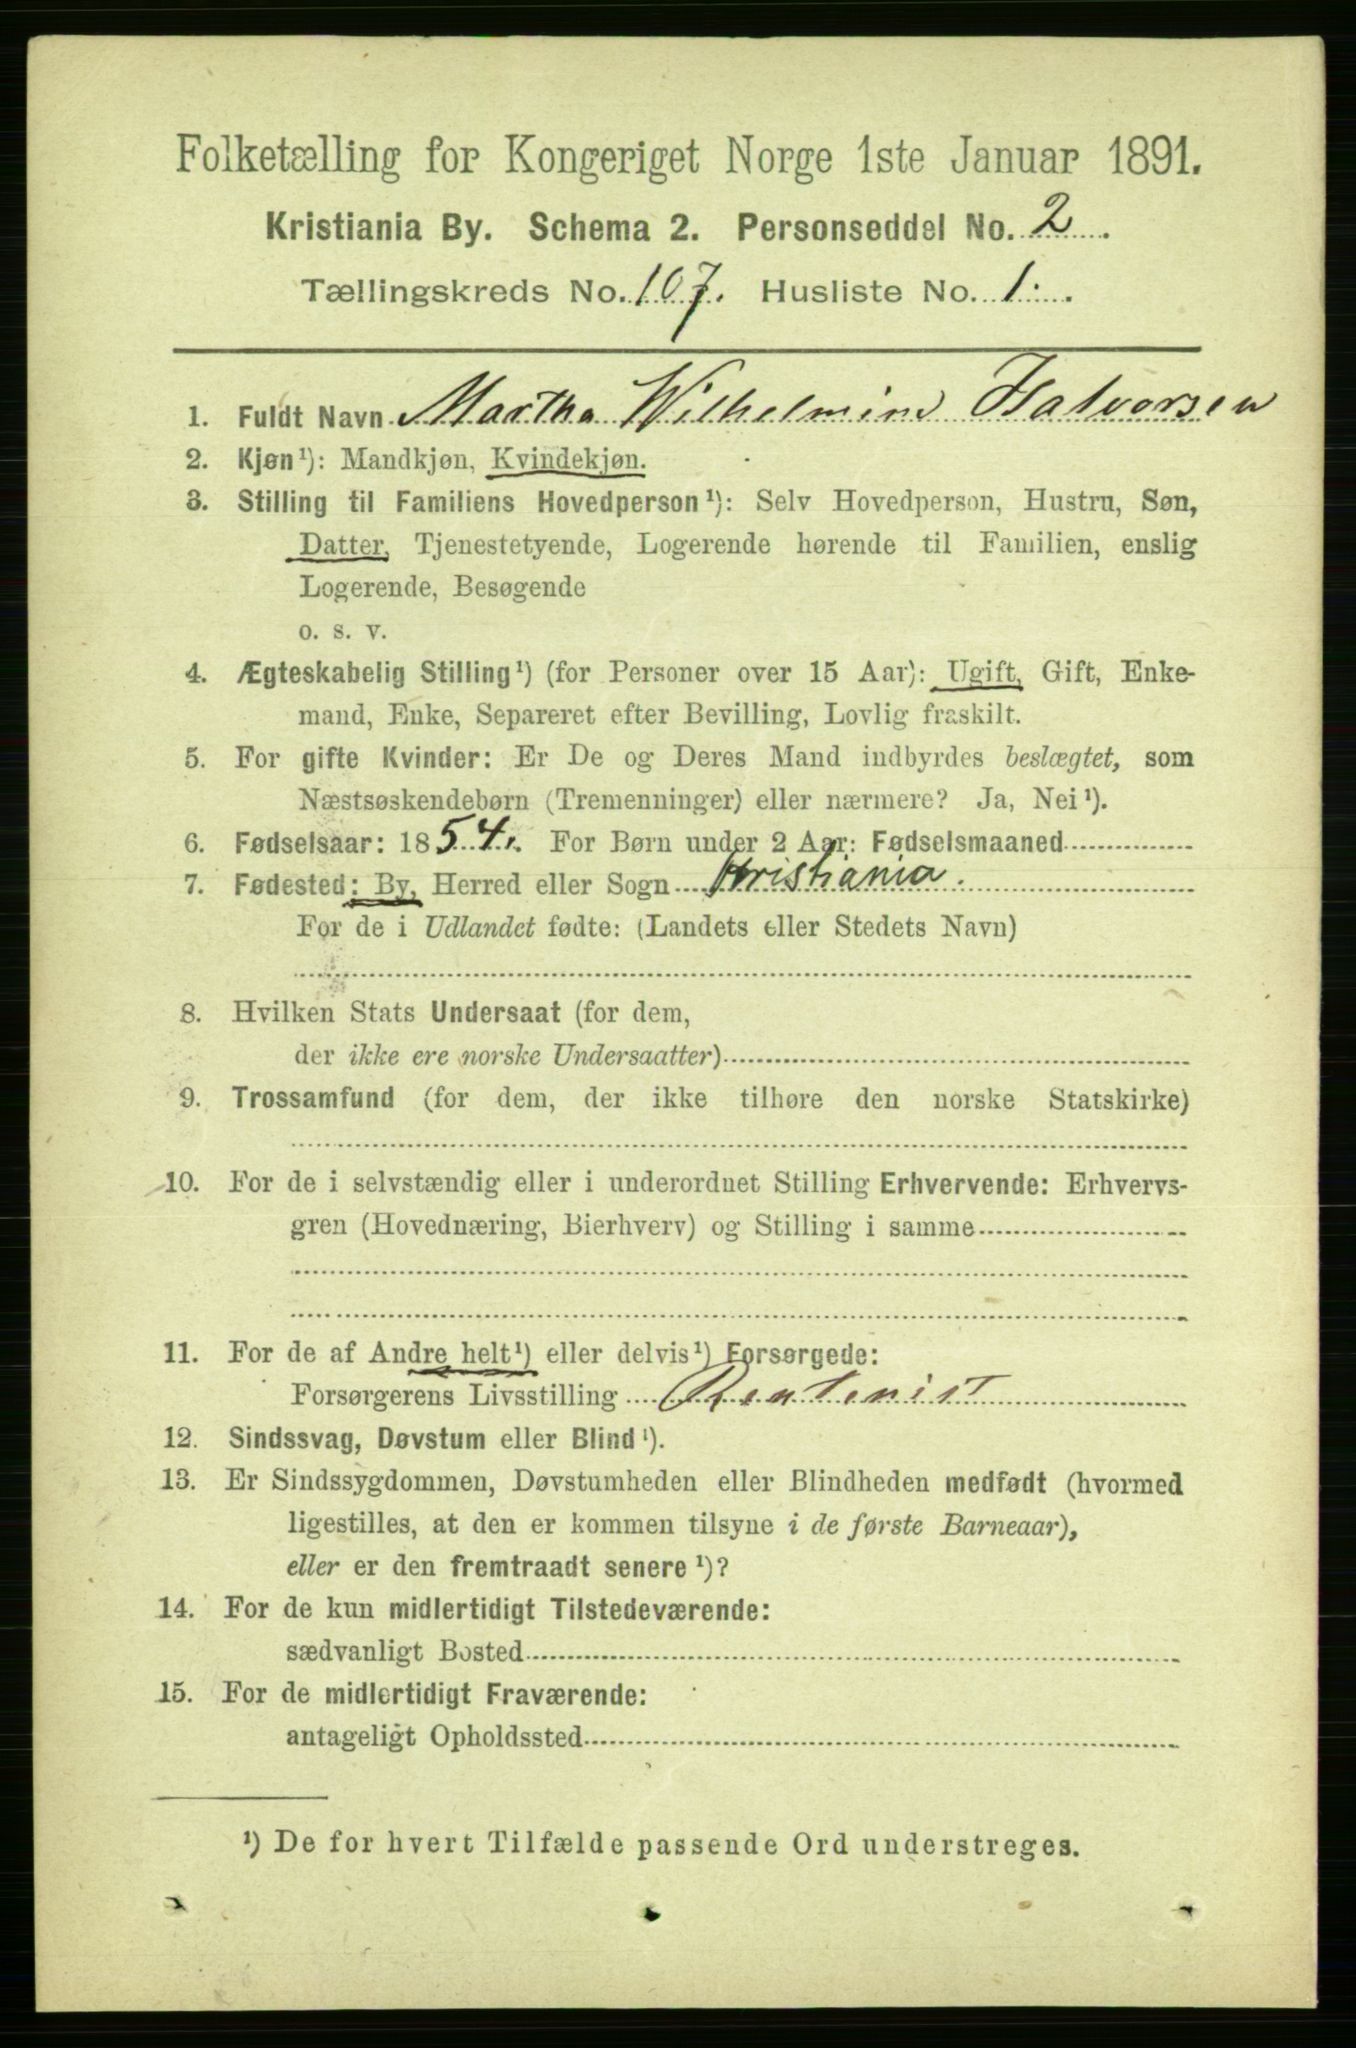 Folketælling for Kongeriget Norge 1ste Januar 1891.
Kristiania By. Schema 2. Personseddel No. 2.
Tællingskreds No. 107. Husliste No. 1.
1. Fuldt Navn Martha Wilhelmine Halvorsen
2. Kjøn¹): Mandkjøn, Kvindekjøn.
3. Stilling til Familiens Hovedperson¹): Selv Hovedperson, Hustru, Søn,
Datter, Tjenestetyende, Logerende hørende til Familien, enslig
Logerende, Besøgende
o. s. v.
4. Ægteskabelig Stilling¹) (for Personer over 15 Aar): Ugift, Gift, Enke-
mand, Enke, Separeret efter Bevilling, Lovlig fraskilt.
5. For gifte Kvinder: Er De og Deres Mand indbyrdes beslægtet, som
Næstsøskendebørn (Tremenninger) eller nærmere? Ja, Nei¹).
6. Fødselsaar: 1854. For Børn under 2 Aar: Fødselsmaaned
7. Fødested: By, Herred eller Sogn Kristiania.
For de i Udlandet fødte: (Landets eller Stedets Navn)
8. Hvilken Stats Undersaat (for dem,
der ikke ere norske Undersaatter)
9. Trossamfund (for dem, der ikke tilhøre den norske Statskirke)
10. For de i selvstændig eller i underordnet Stilling Erhvervende: Erhvervs-
gren (Hovednæring, Bierhverv) og Stilling i samme
11. For de af Andre helt¹) eller delvis¹) Forsørgede:
Forsørgerens Livsstilling Rentenist
12. Sindssvag, Døvstum eller Blind¹).
13. Er Sindssygdommen, Døvstumheden eller Blindheden medfødt (hvormed
ligestilles, at den er kommen tilsyne i de første Barneaar),
eller er den fremtraadt senere¹)?
14. For de kun midlertidigt Tilstedeværende:
sædvanligt Bosted
15. For de midlertidigt Fraværende:
antageligt Opholdssted
¹) De for hvert Tilfælde passende Ord understreges.